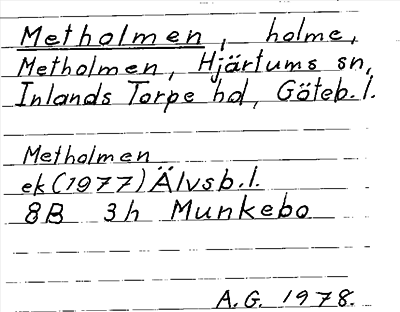 Metholmen, holme,
Metholmen, Hjärtums sn,
Inlands Torpe hd, Göteb. l.
Metholmen
ek (1977) Älvsb. l.
8B 3h Munkebo
A.G. 1978.